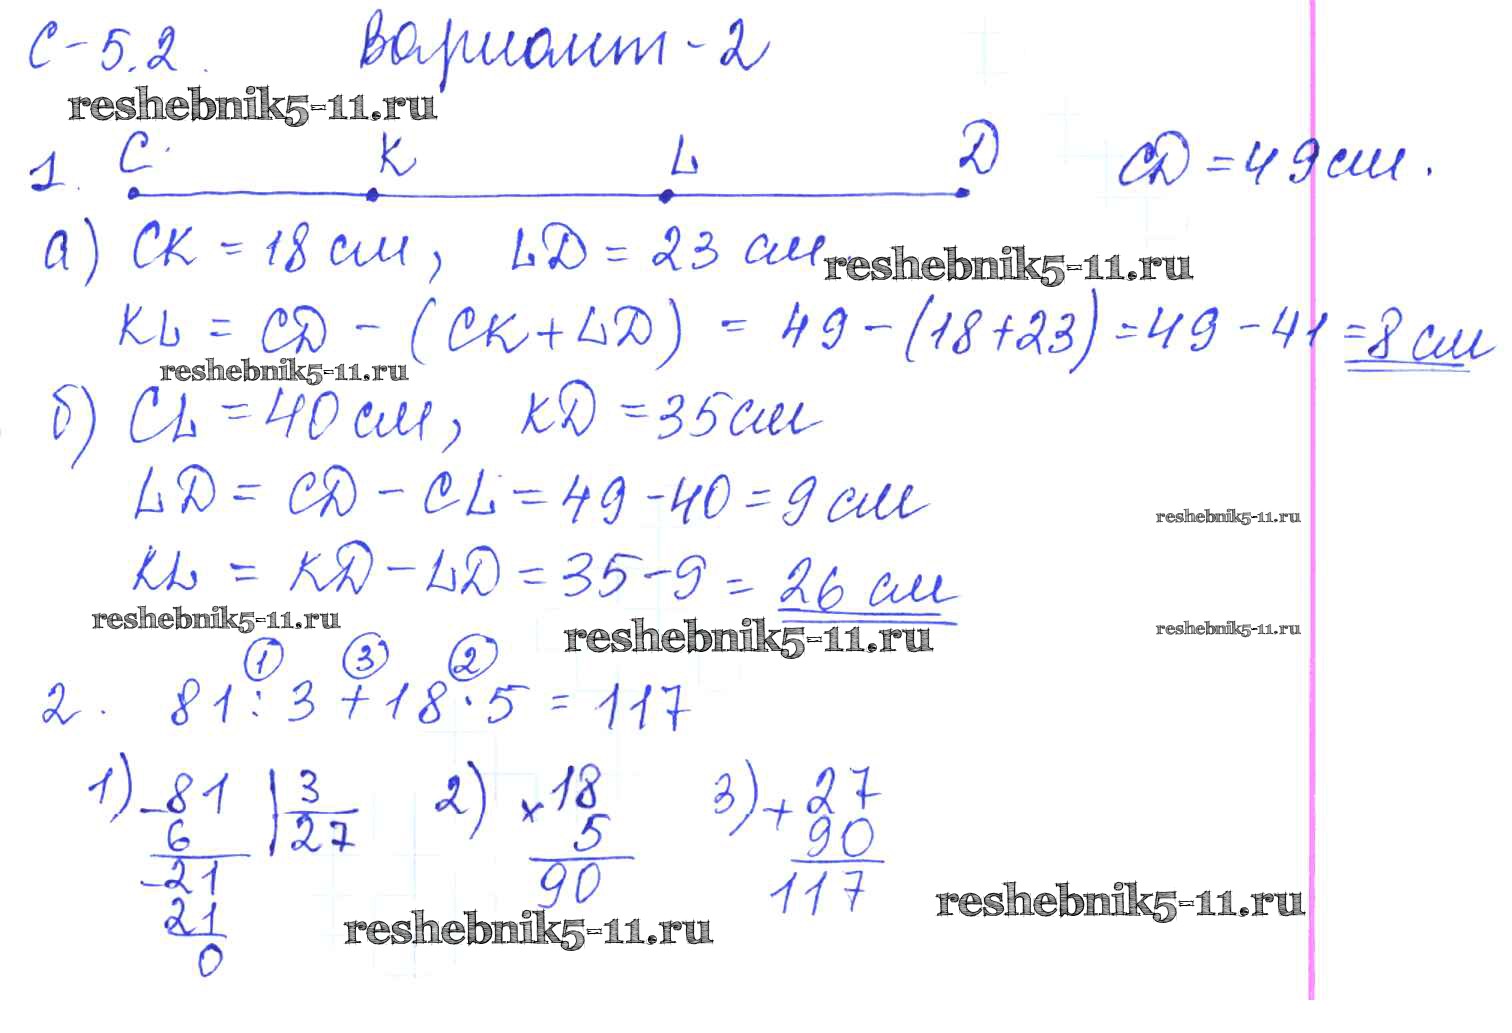 С-5.2. Вариант-2
reshebnik5-11.ru
1. C K L D CD = 49 см.
а) CK = 18 см, LD = 23 см
reshebnik5-11.ru
KL = CD - (CK + LD) = 49 - (18+23) = 49 - 41 = 8 см
reshebnik5-11.ru
б) CL = 40 см, KD = 35 см
LD = CD - CL = 49 - 40 = 9 см
reshebnik5-11.ru
KL = KD - LD = 35 - 9 = 26 см
reshebnik5-11.ru reshebnik5-11.ru reshebnik5-11.ru
1 3 2
2. 81 : 3 + 18 · 5 = 117
1) -81 | 3 2) × 18 3) + 27
6 27 5 90
-21 90 117
21
0
reshebnik5-11.ru reshebnik5-11.ru